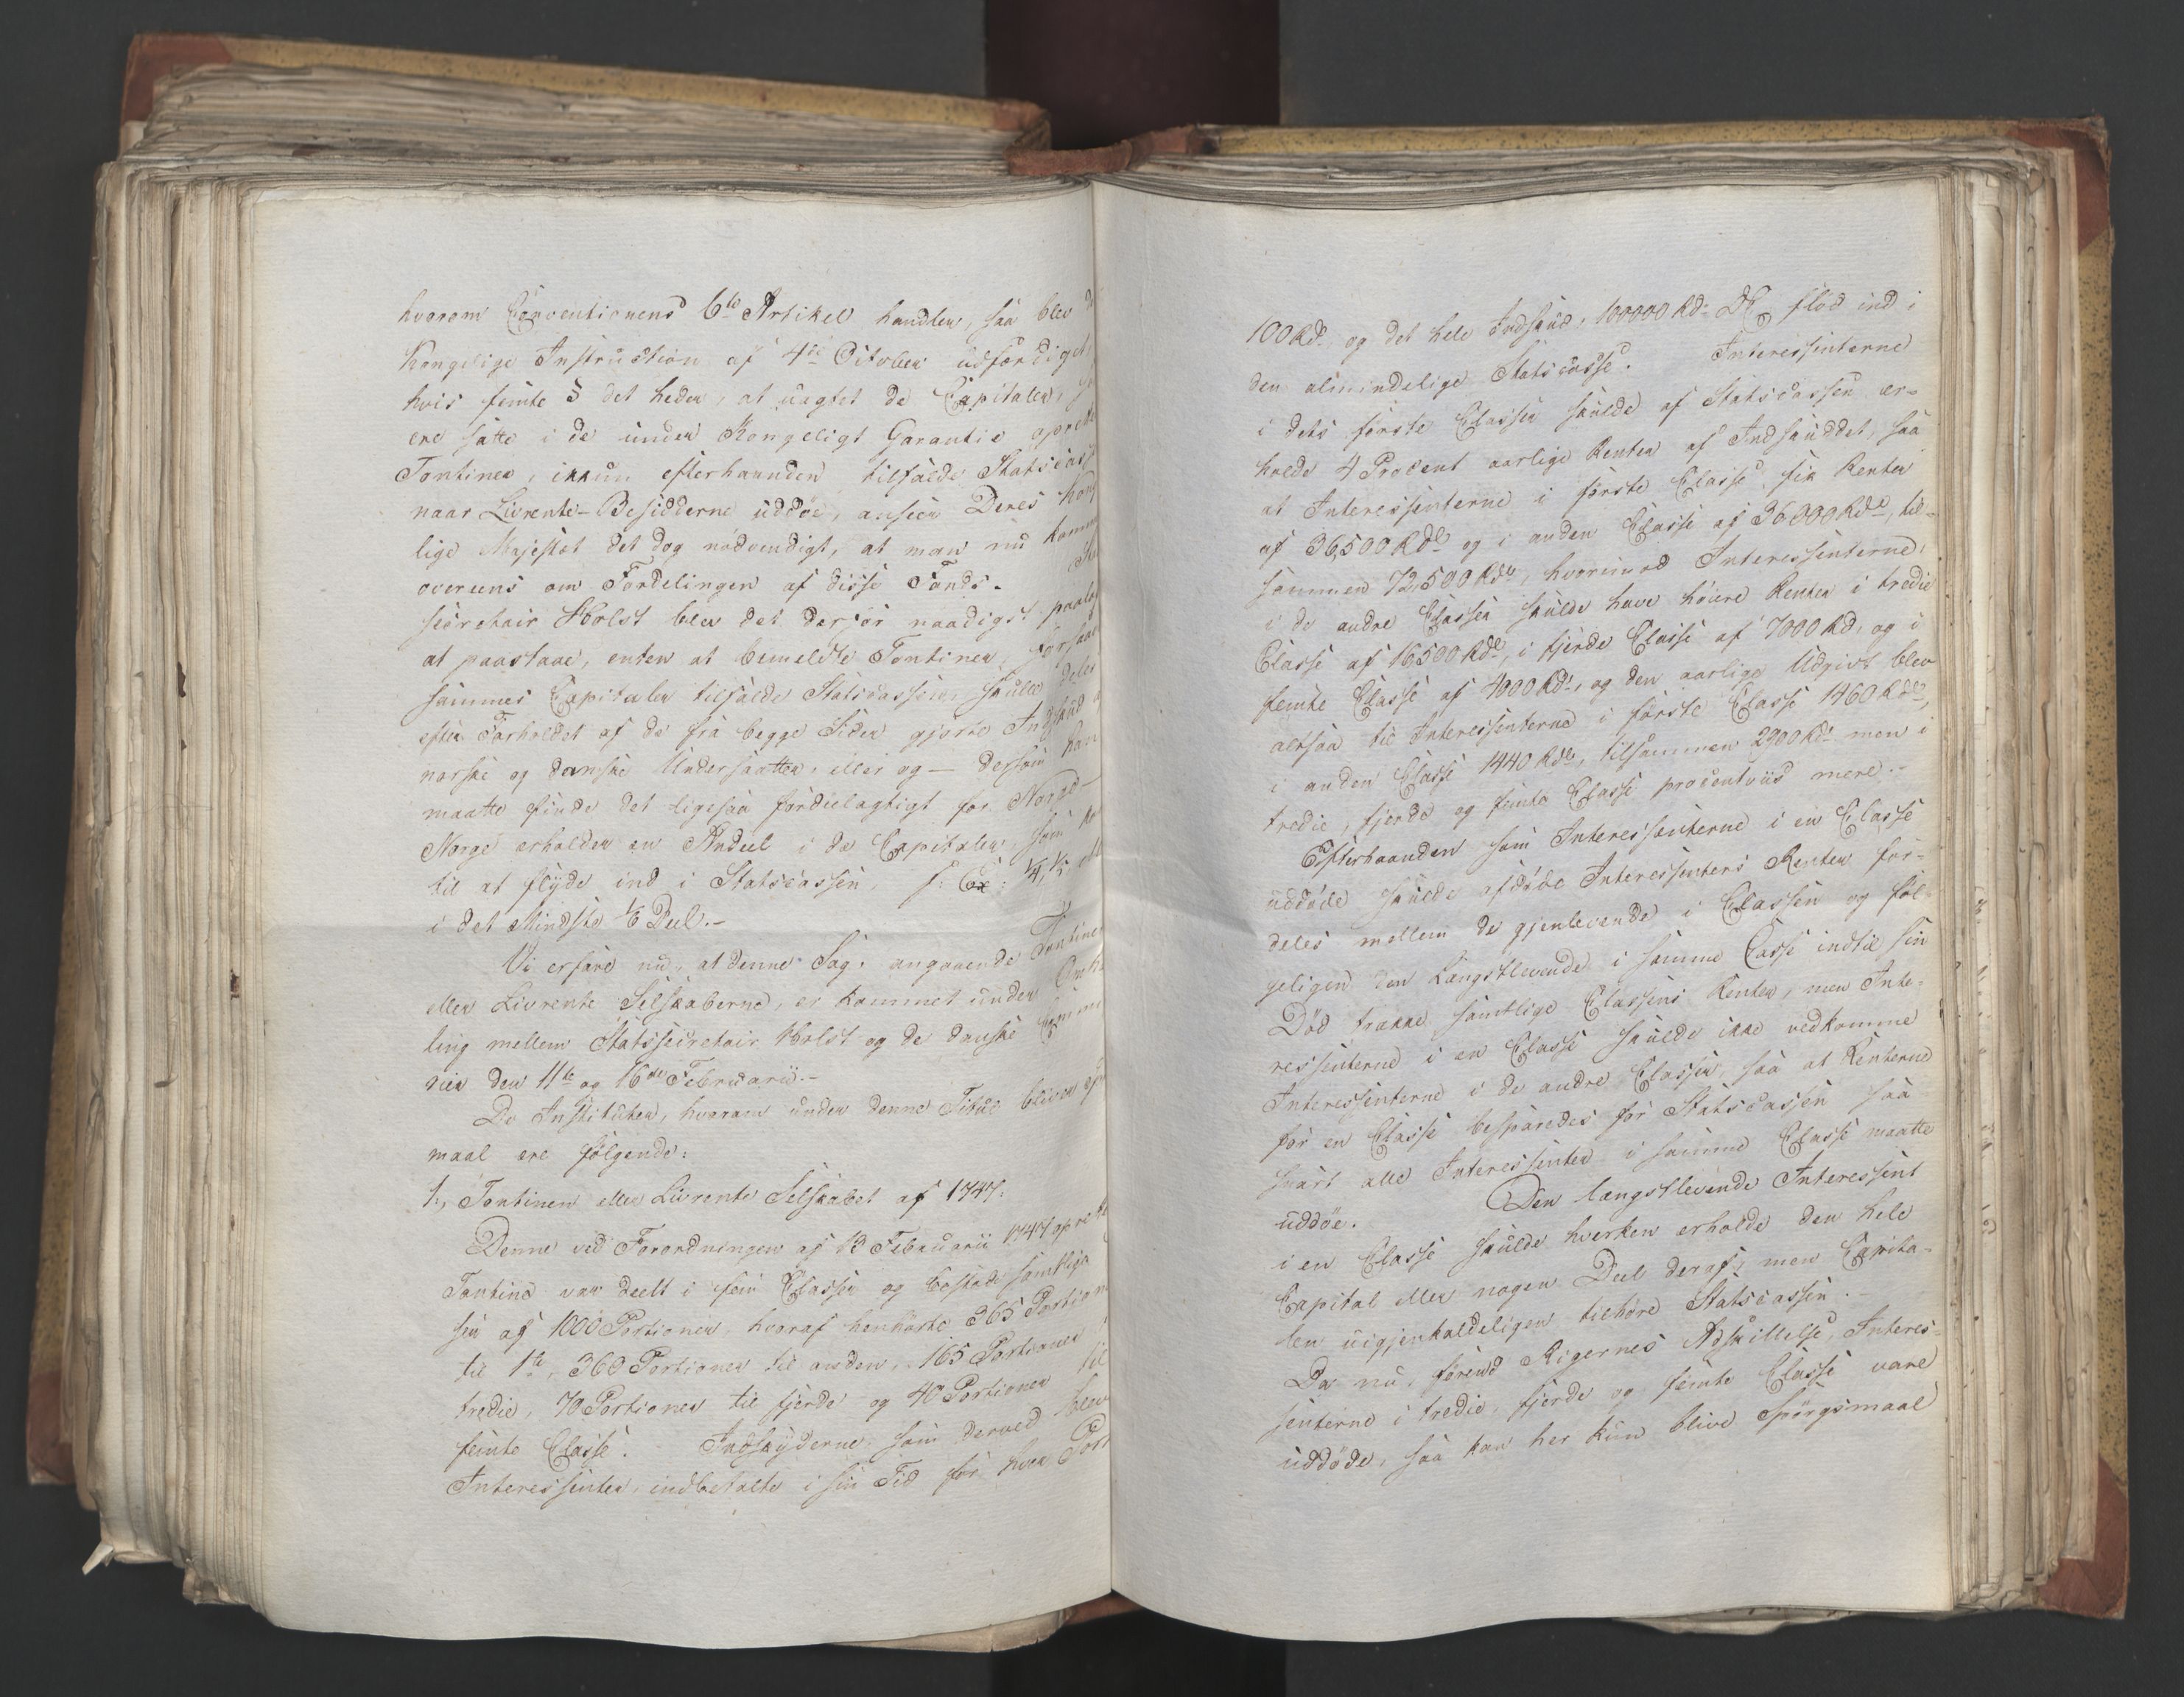 hvorom Conventionens 6te Artikel handler, saa blev
Kongelige Instruction af 4de October udfærdiget,
hvis femte § det heder, at uagtet de Capitaler,
ere satte i de under Kongeligt Garantie oprette
Tontiner, ikkun efterhaanden tilfalde Statscass
naar Livrente-Besidderne uddøe, anseer Deres Kong
lige Majestæt det dog nødvendigt, at man nu komm
overeens om Fordelingen af disse Fonds.
secretair Holst blev det derfor naadigst paala
at paastaae, enten at bemeldte Tontiner, forsaa
sammes Capitaler tilfalde Statscassen, skulle deles
efter Forholdet af de fra begge Sider gjorte Indskud
norske og danske Undersaatter, eller og – dersom han
maatte finde det ligesaa fordeelagtigt for Norge –
Norge erholder en Andeel i de Capitaler, som
til at flyde ind i Statscassen, f: Ex: 1/4, 1/5,
i det Mindste 1/6 Deel.-
Vi erfare nu, at denne Sag, angaaende Tontine
eller Livrente Selskaberne, er kommet under Omh
ling mellem Statssecretair Holst og de danske Comm
rier den 11te og 16de Februarii.-
De Instituter, hvorom under denne Titul bliver
maal ere følgende:
1., Tontinen eller Livrente Selskabet af 1747.
Denne ved Forordningen af 13 Februarii 1747 oprette
Tontine var deelt i fem Classer og bestod samtlige
sin af 1000 Portioner, hvoraf henhørte 365 Portion
til 1te, 360 Portioner til anden, 165 Portioner til
tredie, 70 Portioner til fjerde og 40 Portioner til
femte Classe. Indskyderne, som derved blev
Interessenter, indbetalte i sin Tid for hver Port
100 Rd. og det hele Indskud, 100000 Rd. DC, flød ind i
den almindelige Statscasse. Interessenterne
i dets første Classer skulde af Statscassen er-
holde 4 Procent aarlige Renter af Indskuddet, saa
at Interessenterne i første Classe fik Renter
af 36,500 Rdl og i anden Classe af 36000 Rdl, til-
sammen 72,500 Rdl, hvorimod Interessenterne
i de andre Classer skulde have høiere Renter i tredie
Classe af 16,500 Rdl, i fjerde Classe af 7000 Rd, og i
femte Classe af 4000 Rd, og den aarlige Udgivt blev
altsaa til Interessenterne i første Classe 1460 Rdl,
i anden Classe 1440 Rdl, tilsammen 2900 Rd men i
tredie, fjerde og femte Classe procentviis mere.-
Efterhaanden som Interessenterne i en Classe
uddøde skulde afdøde Interessenters Renter for-
deles mellem de gjenlevende i Classen og føl-
geligen den Længstlevende i samme Casse indtil sin
Død trække samtlige Classens Renter, men Inte-
ressenterne i en Classe skulde ikke vedkomme
Interessenterne i de andre Classer, saa at Renterne
for en Classe besparedes for Statscassen saa
snart alle Interessenter i samme Classe maatte
uddøe. Den længstlevende Interessent
i en Classe skulde hverken erholde den hele
Capital eller nogen Deel deraf, men Capita-
len uigjenkaldeligen tilhøre Statscassen.-
Da nu, førend Rigernes Adskillelse, Interes-
senterne i tredie, fjerde og femte Classe vare
uddøde, saa kan her kun blive Spørgsmaal